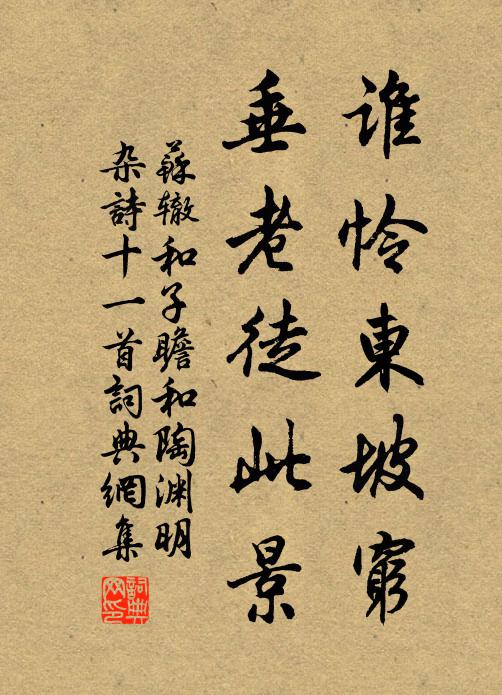 谁怜東坡窮
垂老徒此景
蘇辙和子瞻和陶渊明
杂詩十一首詞典網集
詞典网印